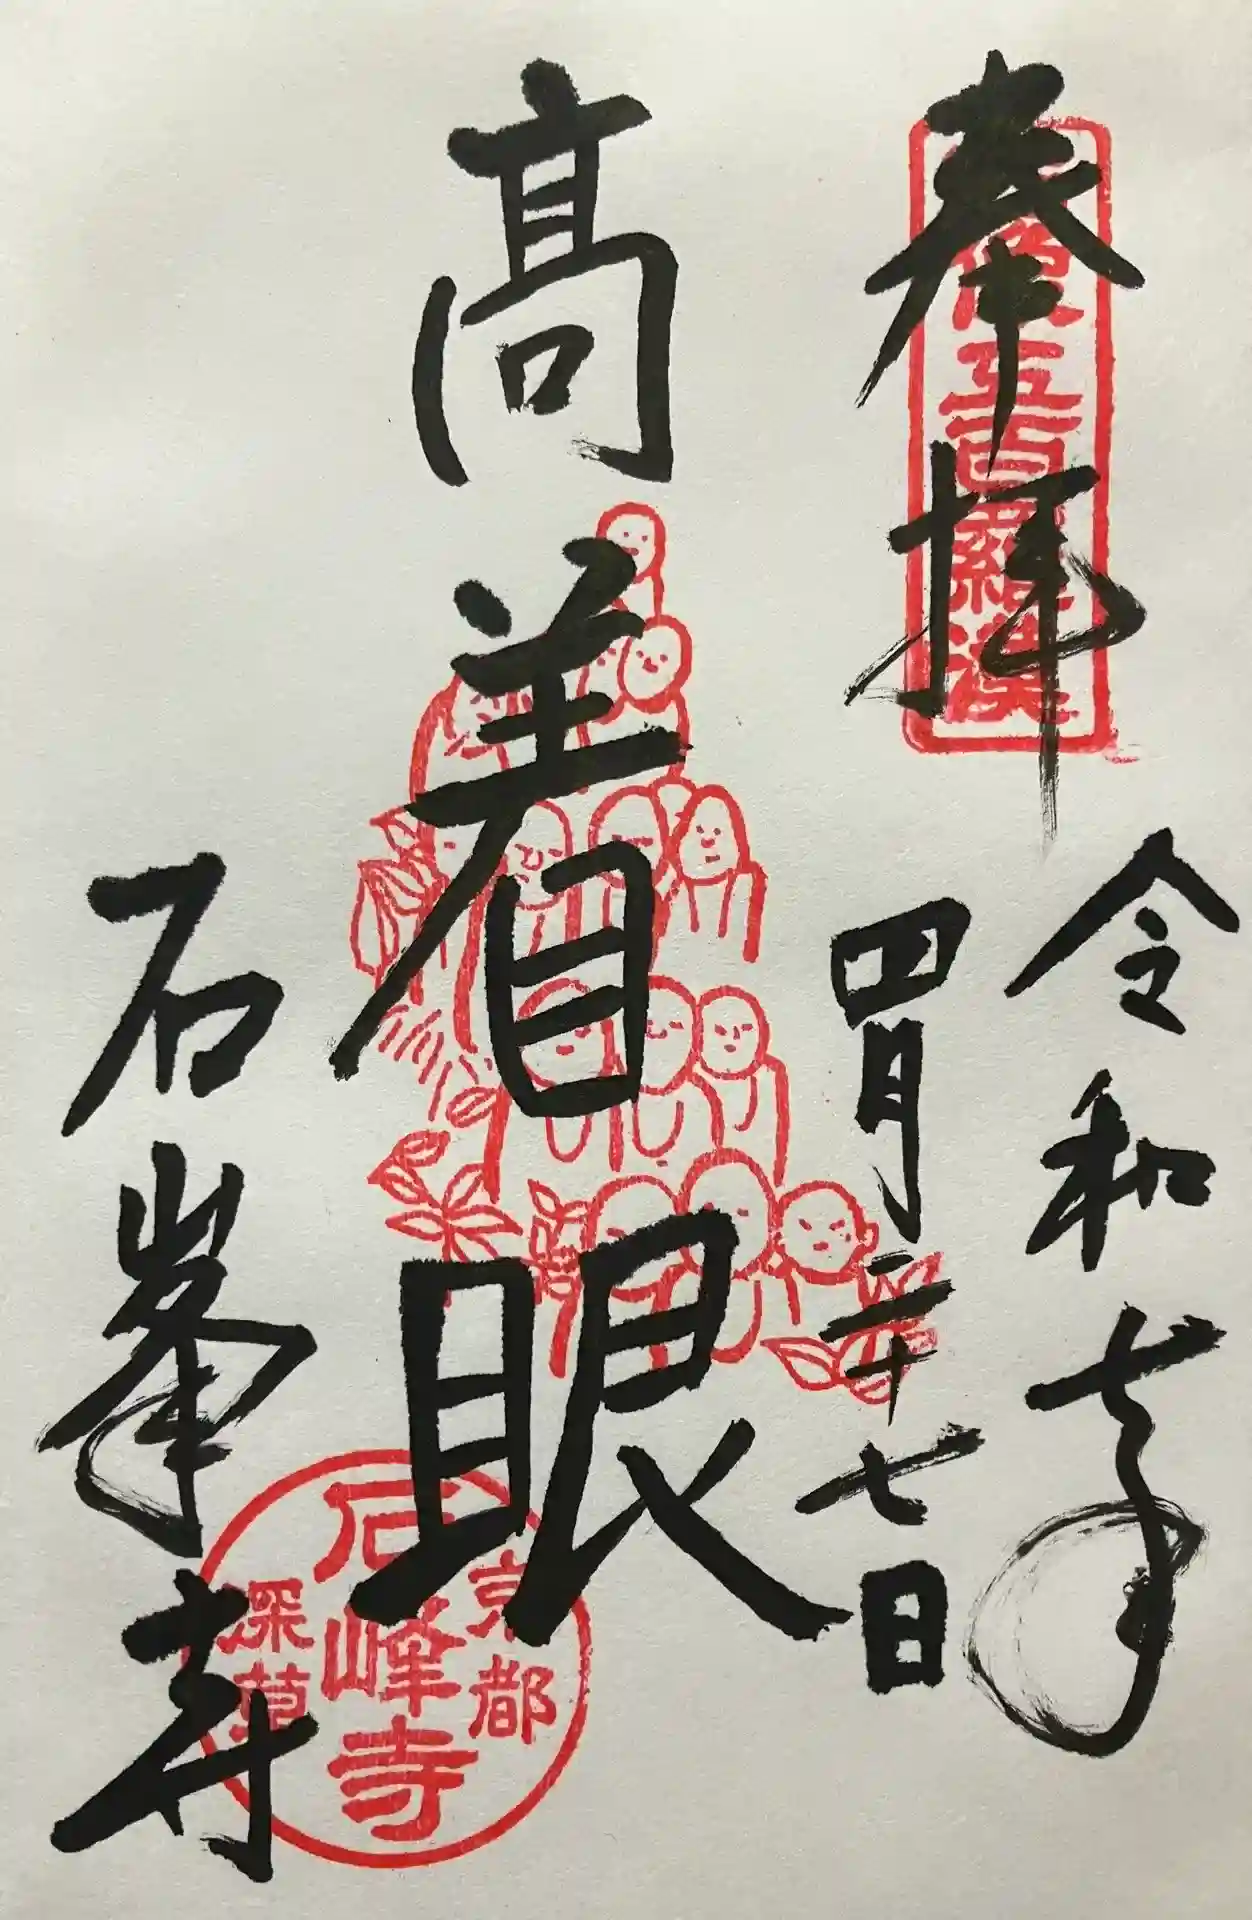 奉拝
五百羅漢
令和七年
四月二十七日
髙着眼
石峯寺
京都
石峰寺
深草